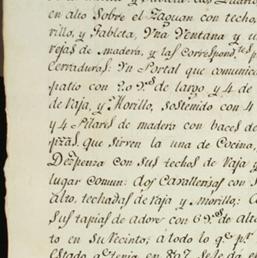 en alto sobre el Zaguan con techo
rillo, y Tableta, Vna Ventana y u
rejas de madera, y las correspond.tes
Cerraduras: Yn Portal que comunica
patio con 20 v.s de largo y 4 de
de Vaja, y Morillo, sostenido con 4
y 4 Pilares de madera con baces de
que sirven la una de Cocina,
Despenza con sus techos de Vaja y
lugar comun: dos Cavallerias con s
alto, techadas de Vaja y Morillo: 
sus tapias de adove con 6 v.s de alto
to en su Recinto; á todo lo q.e p.r
estado q.e tenia en 807 se le da e